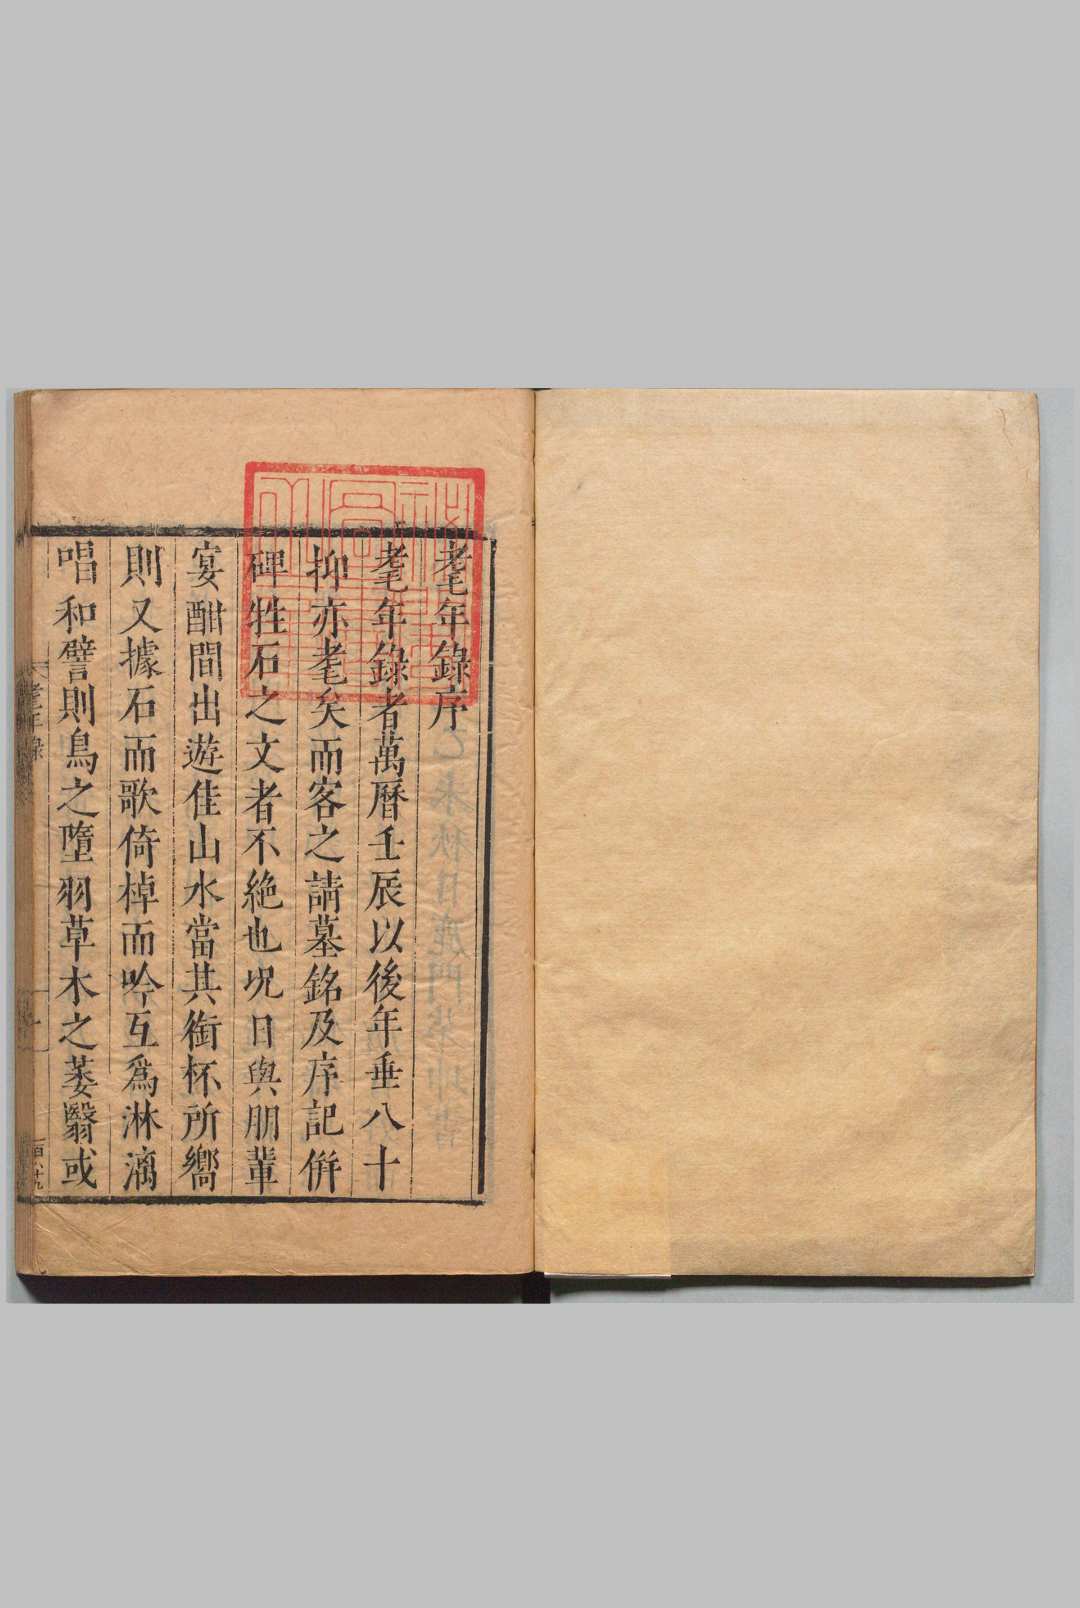 耄年錄序
耄年錄者萬曆壬辰以後年垂八十
抑亦耄矣而客之請墓銘及序記倂
碑牲石之文者不絶也況日與朋輩
宴酣間出遊佳山水當其銜杯所嚮
則又據石而歌倚棹而吟互爲淋漓
唱和譬則鳥之墮羽草木之萎翳或
耄年錄